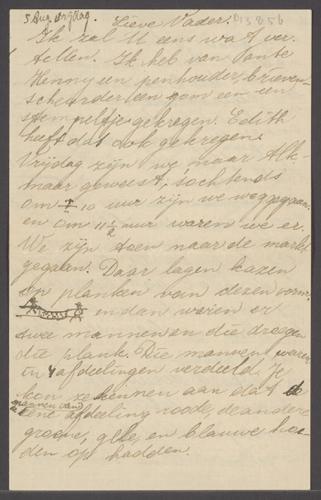 5 Aug. vrijdag. Lieve Vader. D13856
Ik zal U eens wat ver-
tellen. Ik heb van tante
Henny een penhouder, brieven-
scheurder een gom en een
stempeltje gekregen. Edith
heeft das ook gekregen.
Vrijdag zijn we naar Alk-
maar geweest, 'sochtends
om 10 uur zijn we weggegaan
en om 11½ uur waren we er.
We zijn toen naar de markt
gegaan. Daar lagen kazen
op planken van dezen vorm
en dan waren er
twee mannen en die droegen
die plank. Die mannen waren
in 4 afdeelingen verdeeld. Je
kon ze kennen aan dat de
mannen van de
eene afdeeling roode, de andere
groene, gele, en blauwe hoe-
den op hadden.